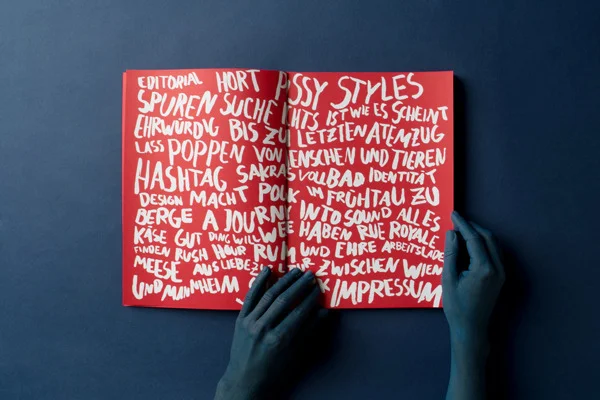 EDITORIAL HORT STYLES
SPUREN SUCHE IST WIE ES SCHEINT
EHRWÜRDIG BIS LETZTEN ATEMZUG
LASS POPPEN VON UND TIEREN
HASHTAG VOLLBAD IDENTITÄT
DESIGN MACHT IM FRÜHTAU ZU
BERGE A INTO SOUND ALLES
KÄSE GUT DING WILL HABEN RUE ROYALE
FINDEN RUSH HOUR UND EHRE
MEESE AUS LIEBE ZWISCHEN WIEN
UND MANNHEIM IMPRESSUM